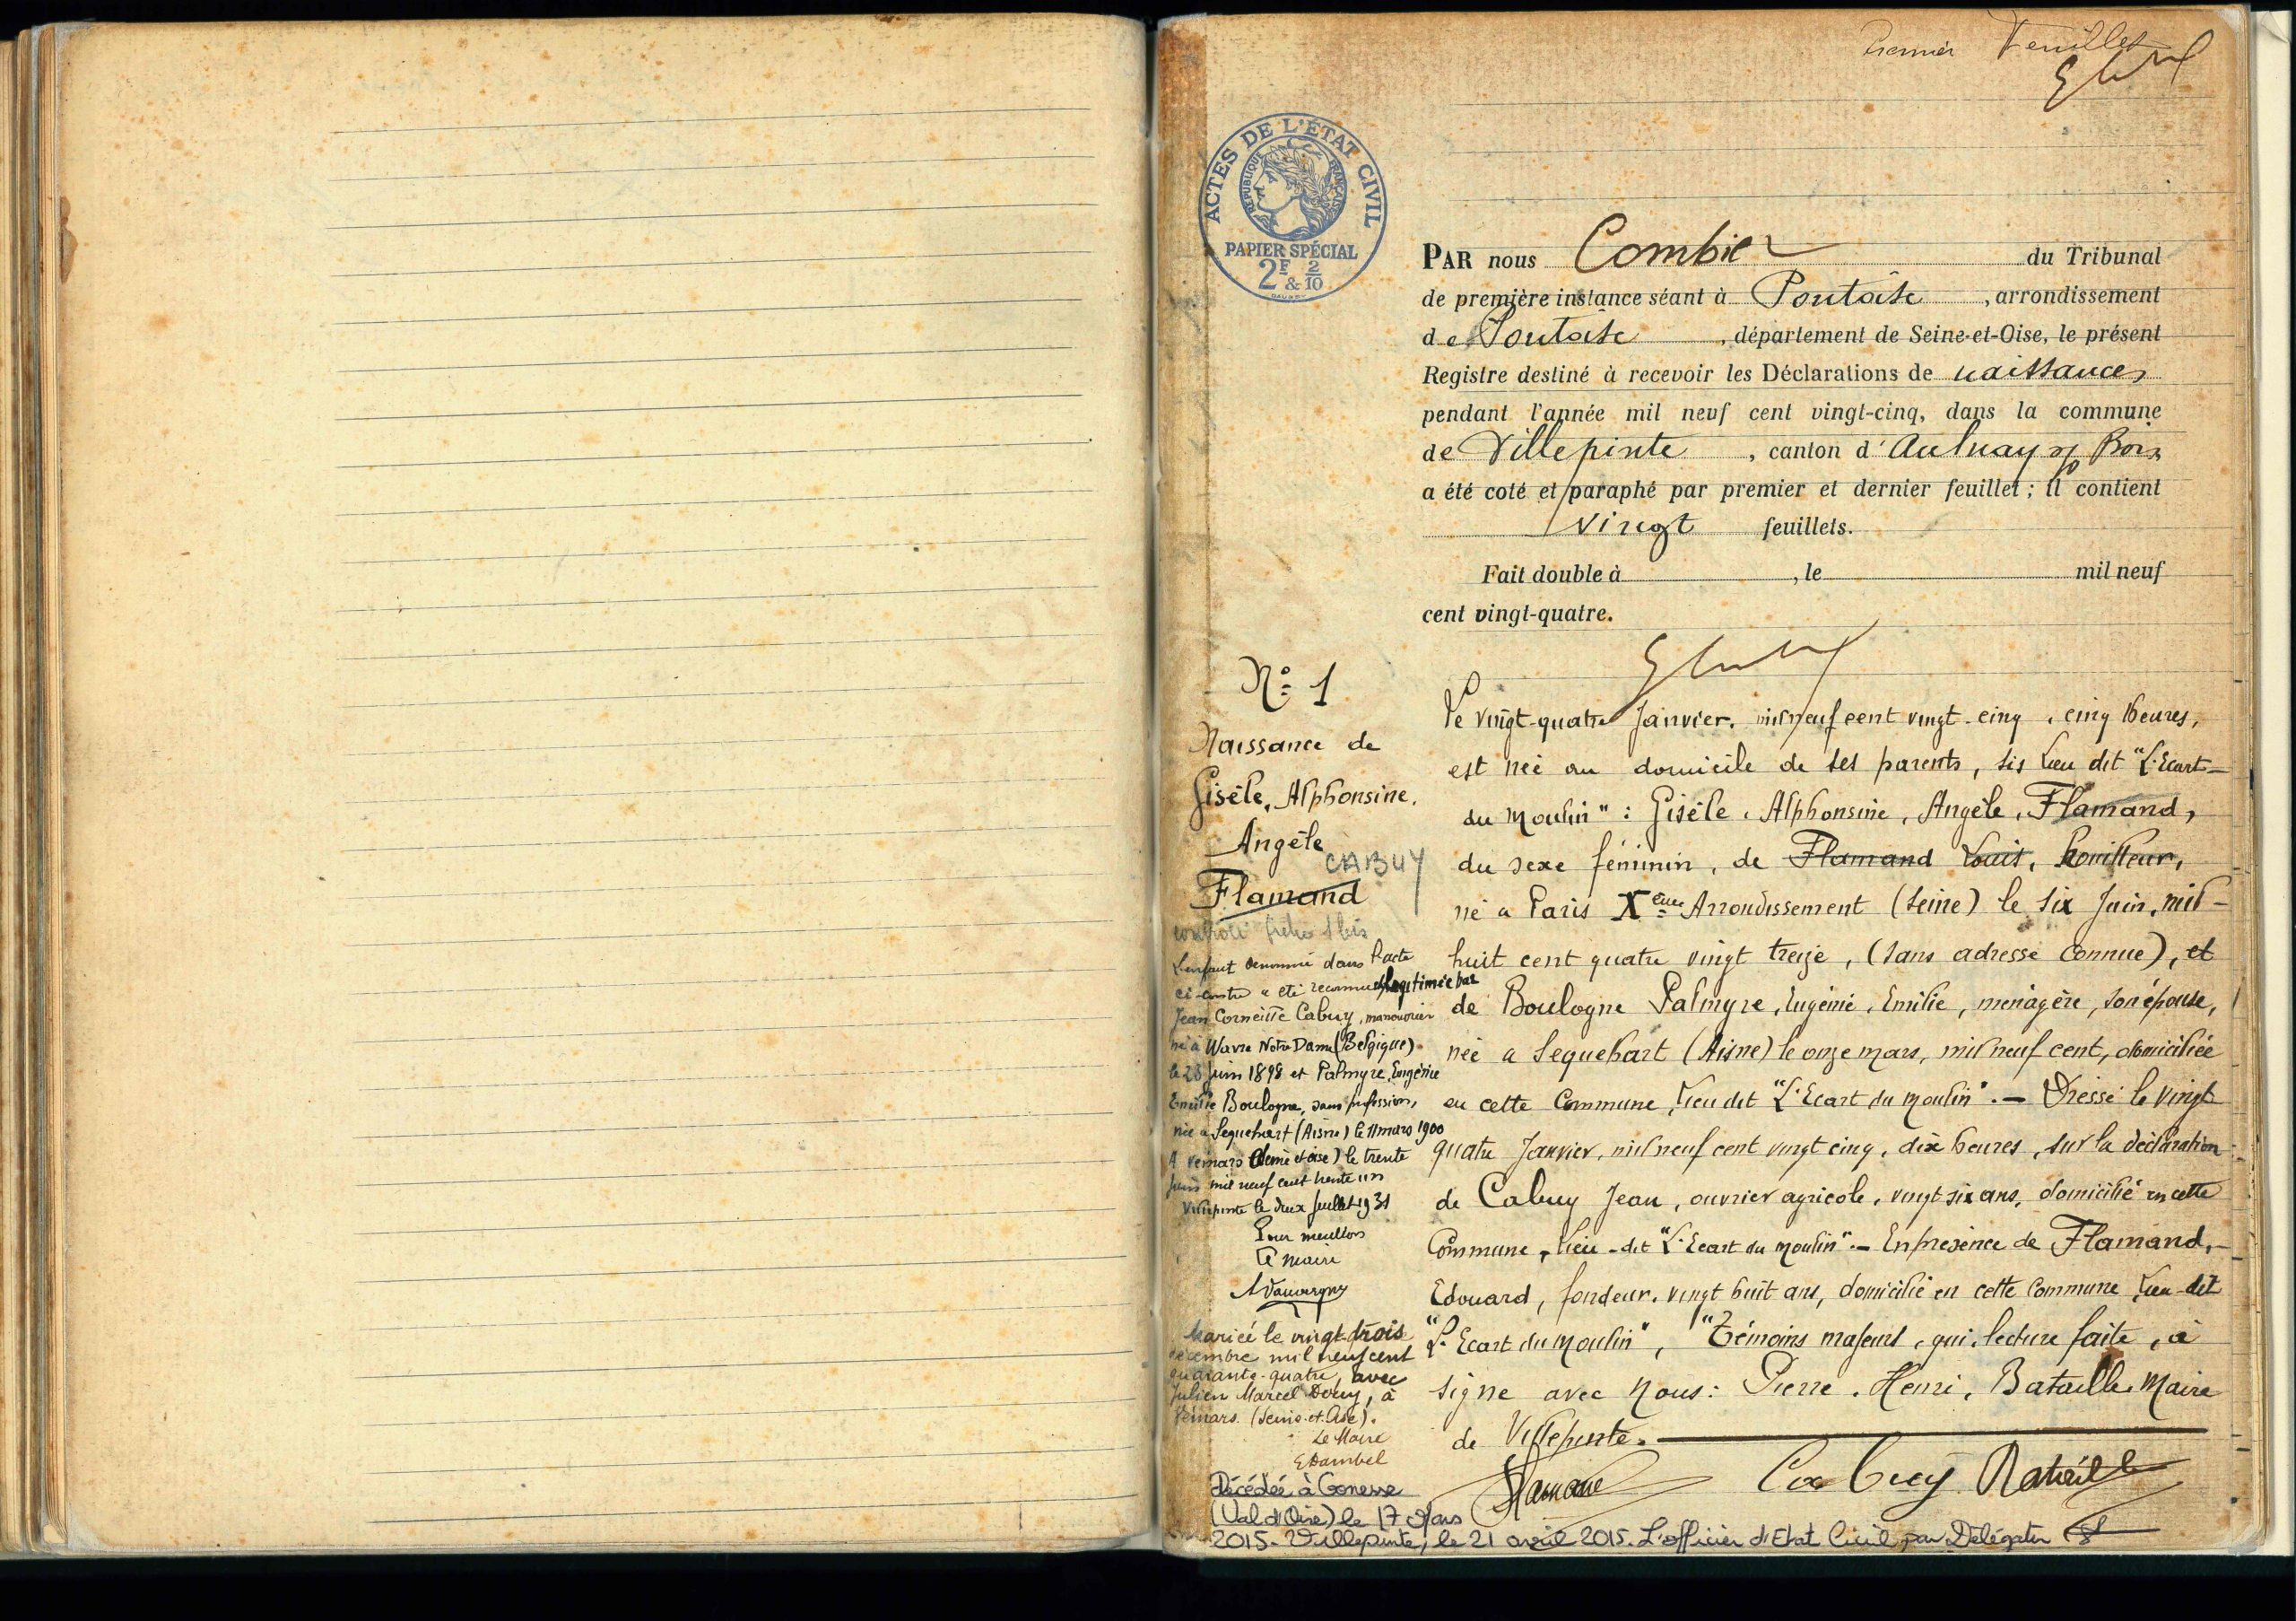 Premier Feuillet
ACTES DE L'ÉTAT CIVIL
RÉPUBLIQUE FRANÇAISE
PAPIER SPÉCIAL
2F & 2/10
PAR nous Combier du Tribunal
de première instance séant à Pontoise, arrondissement
de Pontoise, département de Seine-et-Oise, le présent
Registre destiné à recevoir les Déclarations de naissances
pendant l'année mil neuf cent vingt-cinq, dans la commune
de Villepinte, canton d'Aulnay s/ Bois
a été coté et paraphé par premier et dernier feuillet ; il contient
vingt feuillets.
Fait double à , le mil neuf
cent vingt-quatre.
N° 1
Naissance de
Gisèle, Alphonsine,
Angèle
CABUY
Flamand
L'enfant dénommé dans l'acte
ci-contre a été reconnue et légitimée par
Jean Corneille Cabuy, manouvrier
né à Wavre Notre Dame (Belgique)
le 23 juin 1898 et Palmyre, Eugénie
Emilie Boulogne, sans profession,
née à Sequehart (Aisne) le 11 mars 1900
A Vémars (Seine et Oise) le trente
juin mil neuf cent trente un
Villepinte le deux juillet 1931
Pour mention
Le maire
Mariée le vingt-trois
décembre mil neuf cent
quarante-quatre, avec
Julien Marcel Douy, à
Vémars. (Seine-et-Oise).
Le Maire
Décédée à Gonesse
(Val d'Oise) le 17 Mars
2015. Villepinte, le 21 avril 2015. L'officier d'Etat Civil par Délégation
Le vingt-quatre Janvier, mil neuf cent vingt-cinq, cinq heures,
est née au domicile de ses parents, sis Lieu dit "L'Ecart-
du Moulin" : Gisèle, Alphonsine, Angèle, Flamand,
du sexe féminin, de Flamand Louis, houilleur,
né à Paris Xème Arrondissement (Seine) le six Juin, mil-
huit cent quatre vingt treize, (sans adresse connue), et
de Boulogne Palmyre, Eugénie, Emilie, ménagère, son épouse,
née à Sequehart (Aisne) le onze mars, mil neuf cent, domiciliée
en cette Commune, Lieu dit "L'Ecart du Moulin". — Dressé le vingt
quatre Janvier, mil neuf cent vingt cinq, dix heures, sur la déclaration
de Cabuy Jean, ouvrier agricole, vingt six ans, domicilié en cette
Commune, Lieu-dit "L'Ecart du Moulin". — En présence de Flamand,
Edouard, fondeur, vingt huit ans, domicilié en cette Commune Lieu-dit
"L'Ecart du Moulin", Témoins majeurs, qui, lecture faite, a
signé avec Nous: Pierre, Henri, Bataille, Maire
de Villepinte.
Flamand Cabuy Bataille